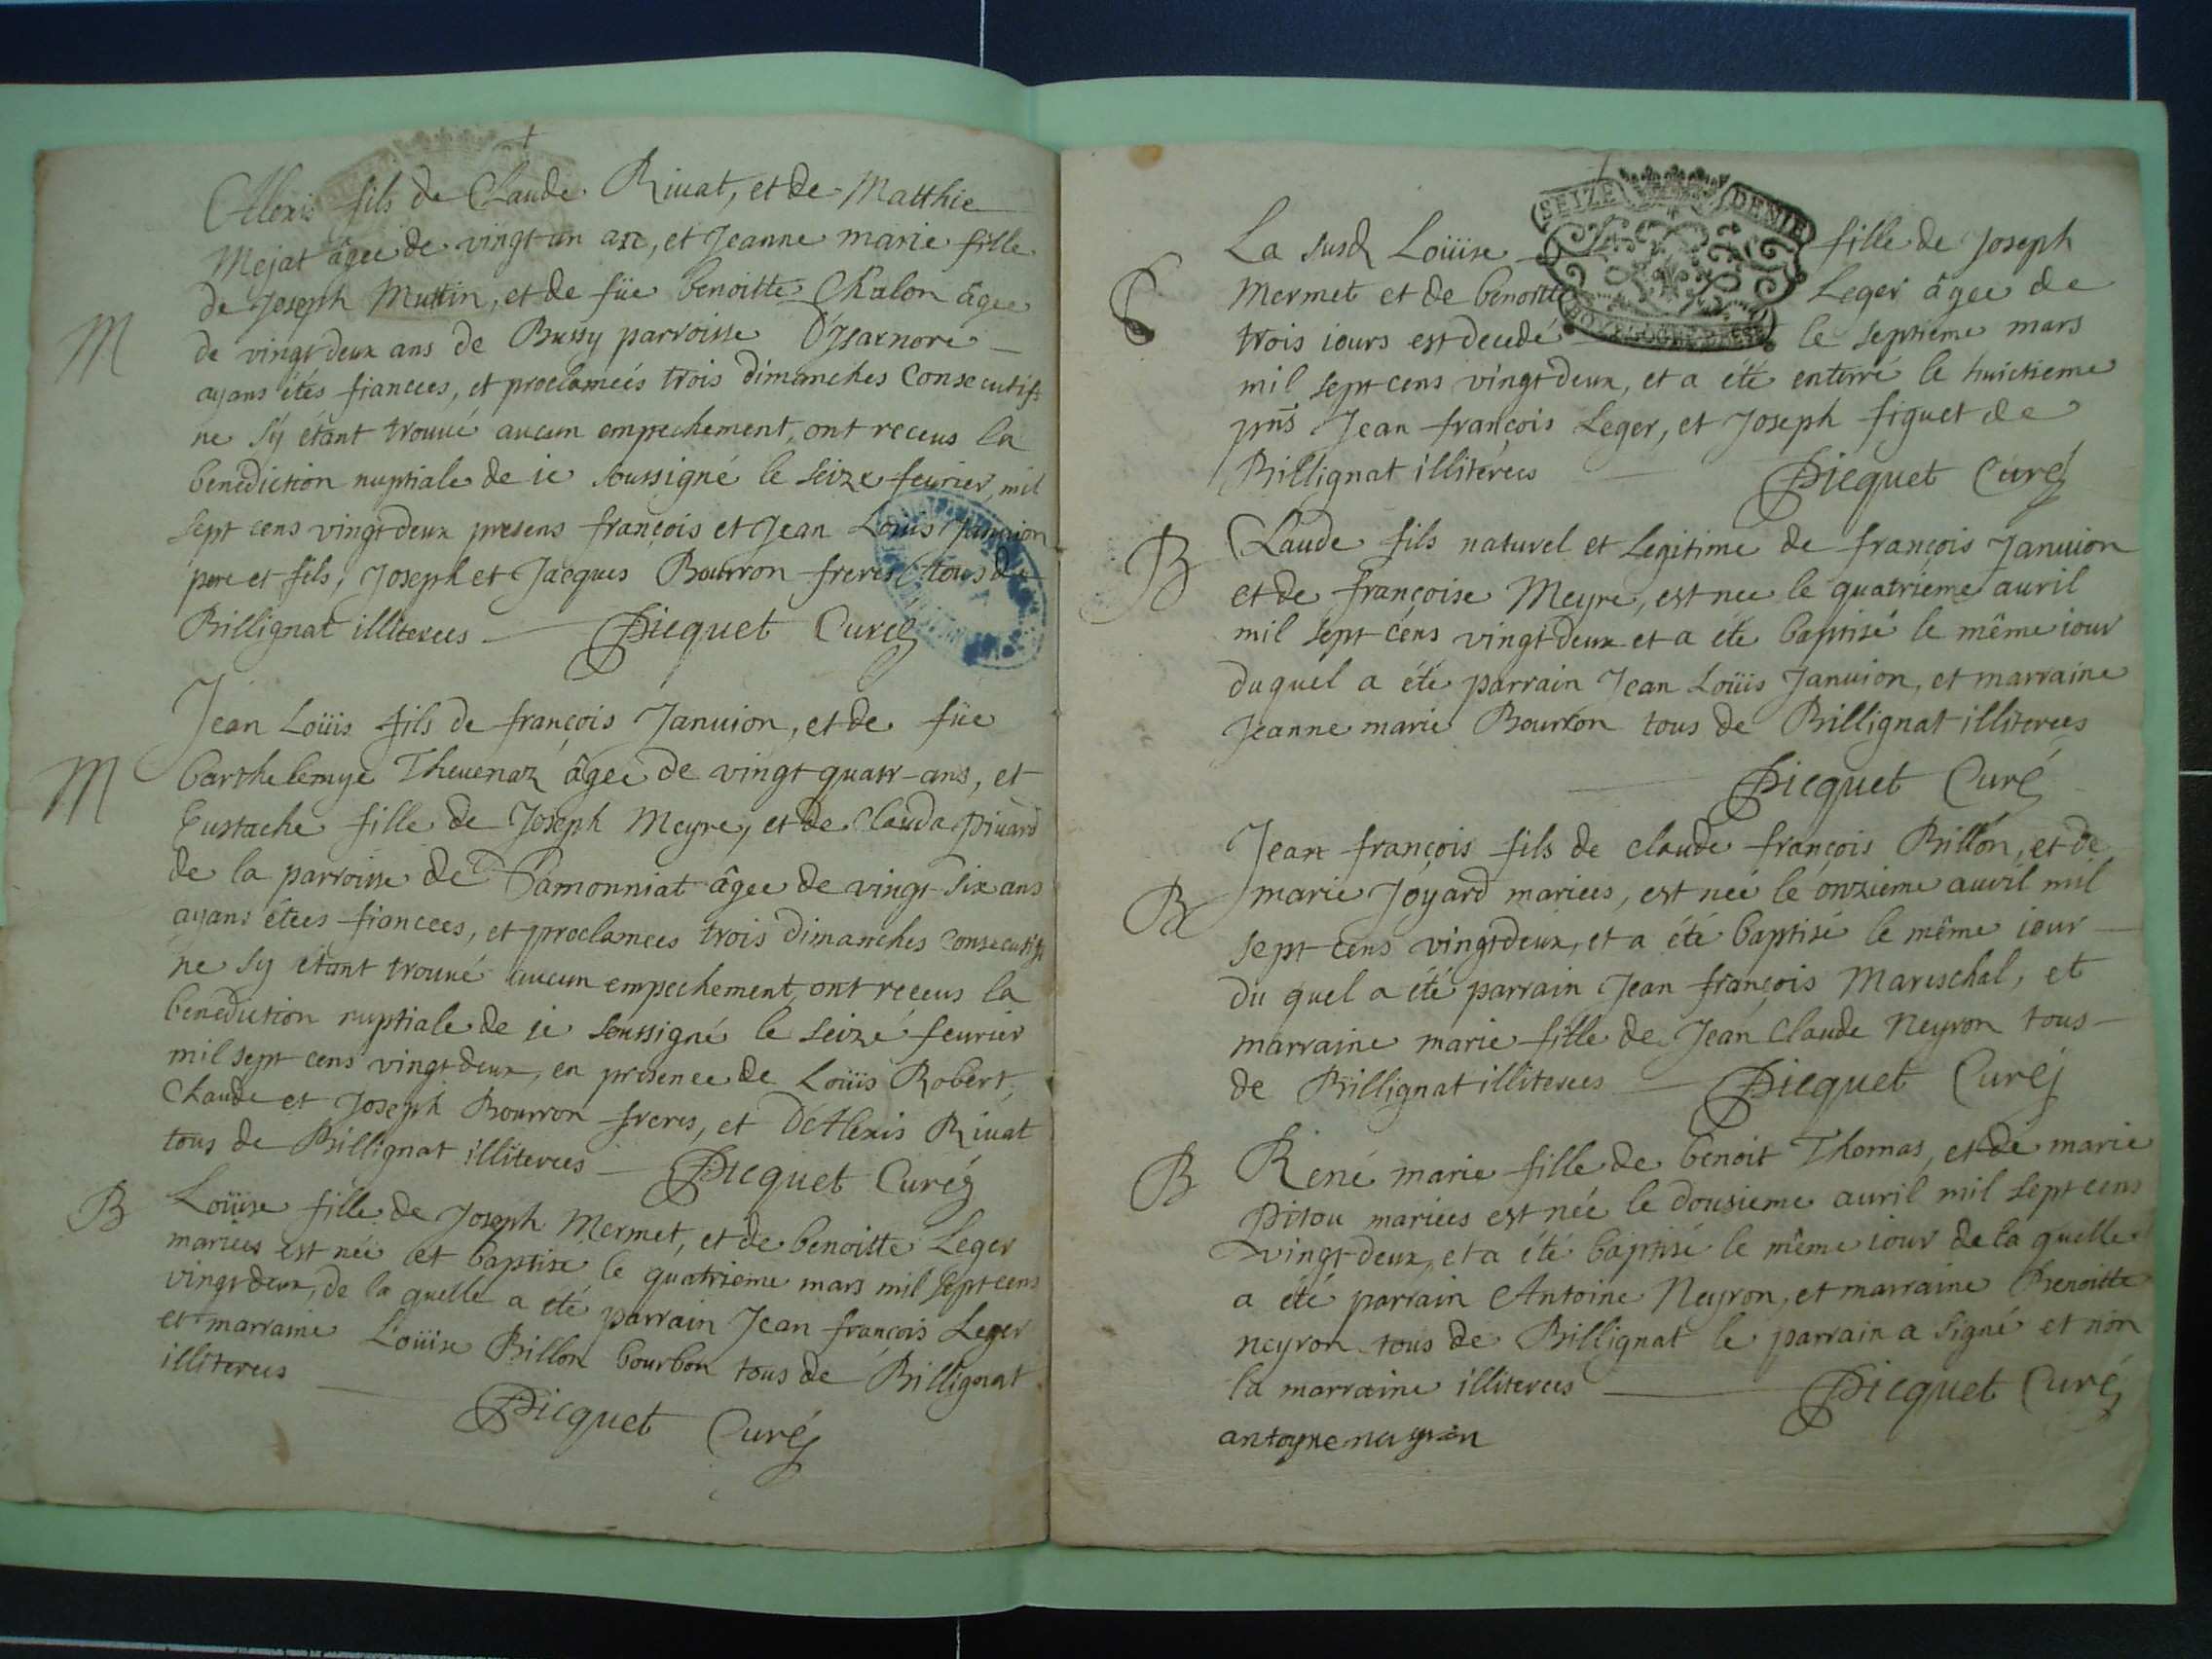 Alexis fils de Claude Rivat, et de Matthie
Mejat âgee de vingt un an, et Jeanne marie fille
de Joseph Muttin, et de füe benoitte Chalon âgee
de vingt deux ans de Bussy parroisse D'Jsarnore
M
ayans étés fiancees, et proclameés trois dimanches Consecutifs
ne s'y étant trouué aucun empechement, ont receus la
benediction nuptiale de ie soussigné le seize feurier, mil
sept cens vingt deux presens françois et Jean Louis Januion
pere et fils, Joseph et Jacques Bourron freres tous de
Billignat illiterees Picquet Curé
Jean Loüis fils de françois Januion, et de füe
M
barthelemye Theuenaz âgee de vingt quatr-ans, et
Eustache fille de Joseph Meyre, et de Clauda Piuard
de la parroisse de Samonniat âgee de vingt six ans
ayans étees fiancees, et proclamees trois dimanches consecutifs
ne s'y étant trouué aucun empechement, ont receus la
benediction nuptiale de ie soussigné le seizé feurier
mil sept cens vingt deux, en presence de Loüis Robert,
Claude et Joseph Bourron freres, et D'Alexis Riuat
tous de Billignat illiterees Picquet Curé
B Loüise fille de Joseph Mermet, et de benoitte Leger
mariees est née et baptise le quatrieme mars mil sept cens
vingt deux, de la quelle a eté parrain Jean françois Leger
et marraine Loüise Billon bourbon tous de Billignat
illiterees
Picquet Curé
SEIZE DENIE
La susd Loüise fille de Joseph
Mermet et de benoitte Leger âgee de
trois iours est decedé le septieme mars
mil sept cens vingt deux, et a été enterré le huictieme
pns Jean françois Leger, et Joseph figuet de
Billignat illiterees Picquet Curé
B Claude fils naturel et Legitime de françois Januion
et de françoise Meyre, est nee le quatrieme auril
mil sept cens vingt deux et a été baptisé le même iour
duquel a été parrain Jean Loüis Januion, et marraine
Jeanne marie Bourron tous de Billignat illiterees
Picquet Curé
Jean françois fils de claude françois Billon, et de
B marie Joyard mariees, est neé le onzieme auvil mil
sept cens vingt deux, et a été baptisé le même iour
du quel a été parrain Jean françois Mareschal, et
marraine marie fille de Jean Claude Neyron tous
de Billignat illiterees Picquet Curé
B René marie fille de benoit Thomas, et de marie
Pitou mariees est née le dousieme auril mil sept cens
vingt deux, et a été baptisé le même iour de la quelle
a été parrain Antoine Neyron, et marraine Benoitte
neyron tous de Billignat le parrain a signé et non
la marraine illiterees Picquet Curé
antoyne neyron